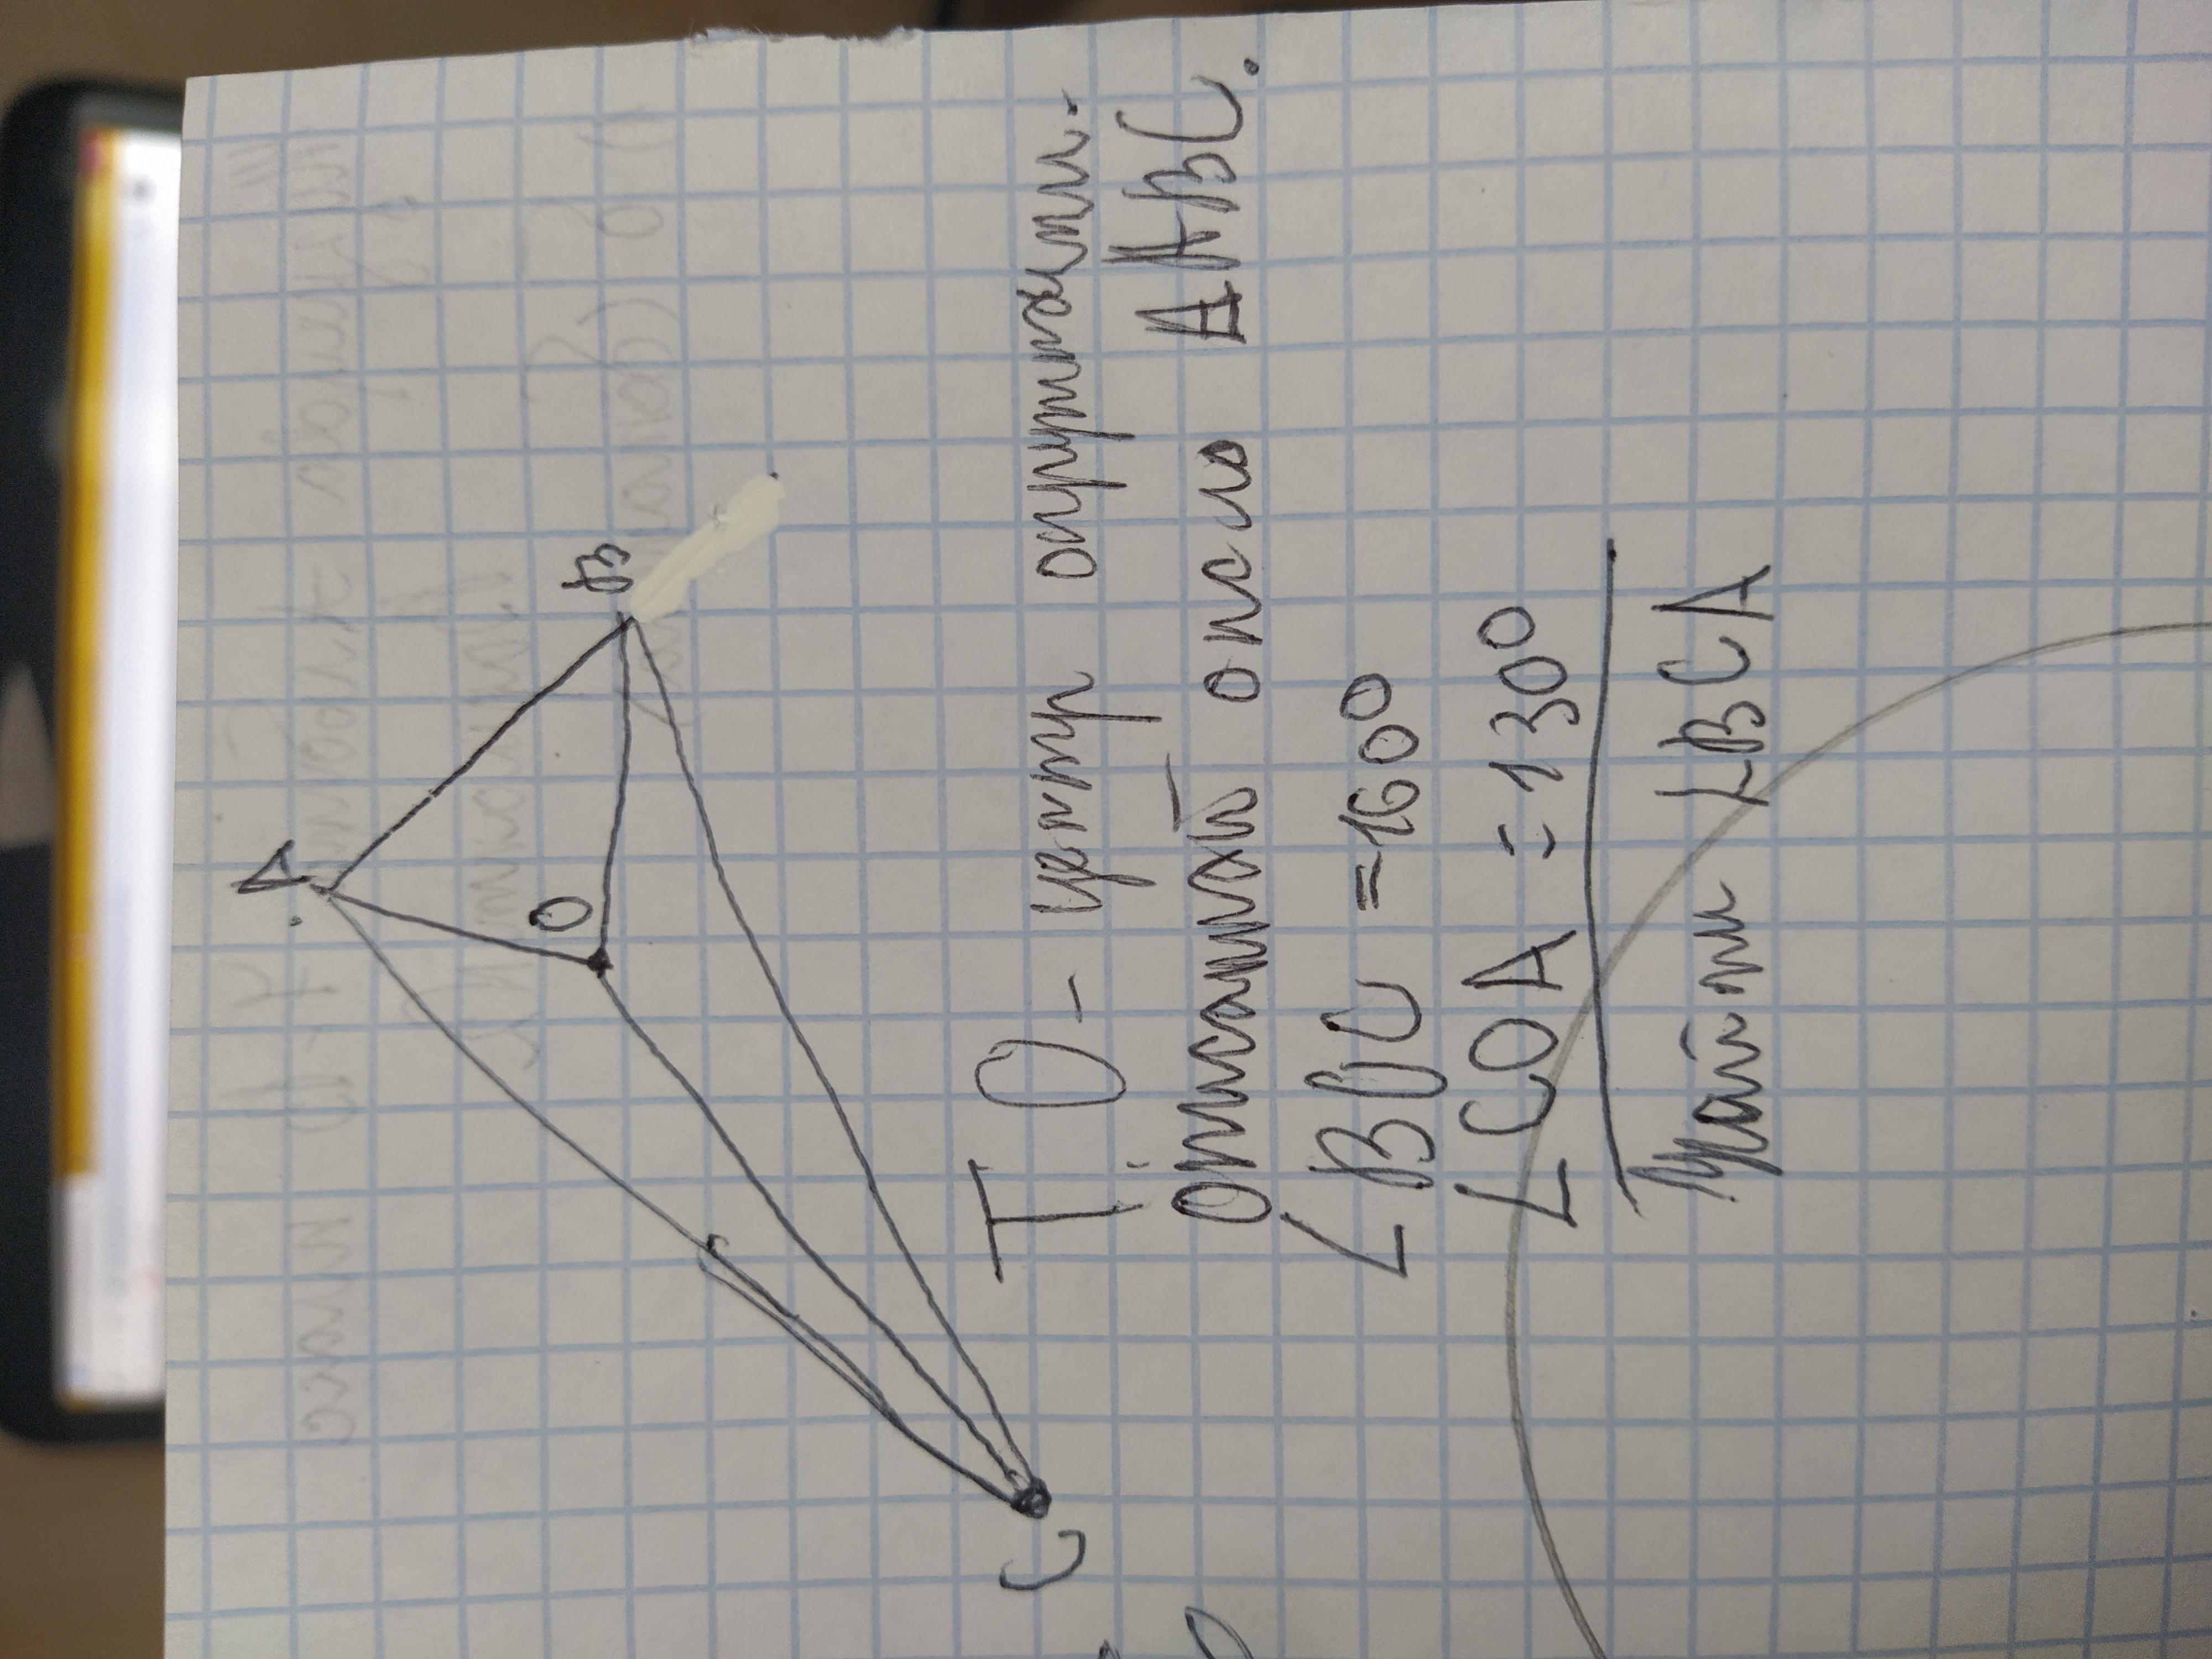 A
B
O
C
T O - центр окружности.
Описаной около ΔABC.
∠BOC = 160°
∠COA = 130°
Найти ∠BCA